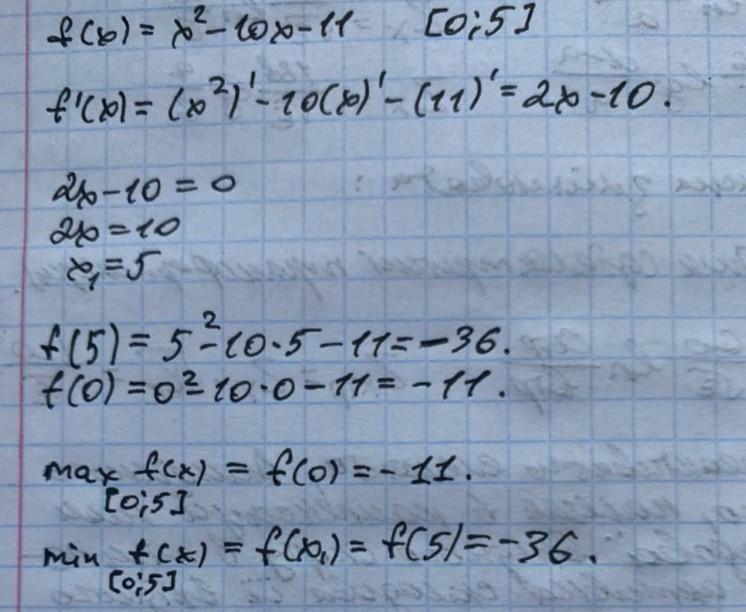 f(x) = x² - 10x - 11 [0;5]
f'(x) = (x²)' - 10(x)' - (11)' = 2x - 10.
2x - 10 = 0
2x = 10
x₁ = 5
f(5) = 5² - 10·5 - 11 = -36.
f(0) = 0² - 10·0 - 11 = -11.
max f(x) = f(0) = -11.
[0;5]
min f(x) = f(x₁) = f(5) = -36.
[0;5]